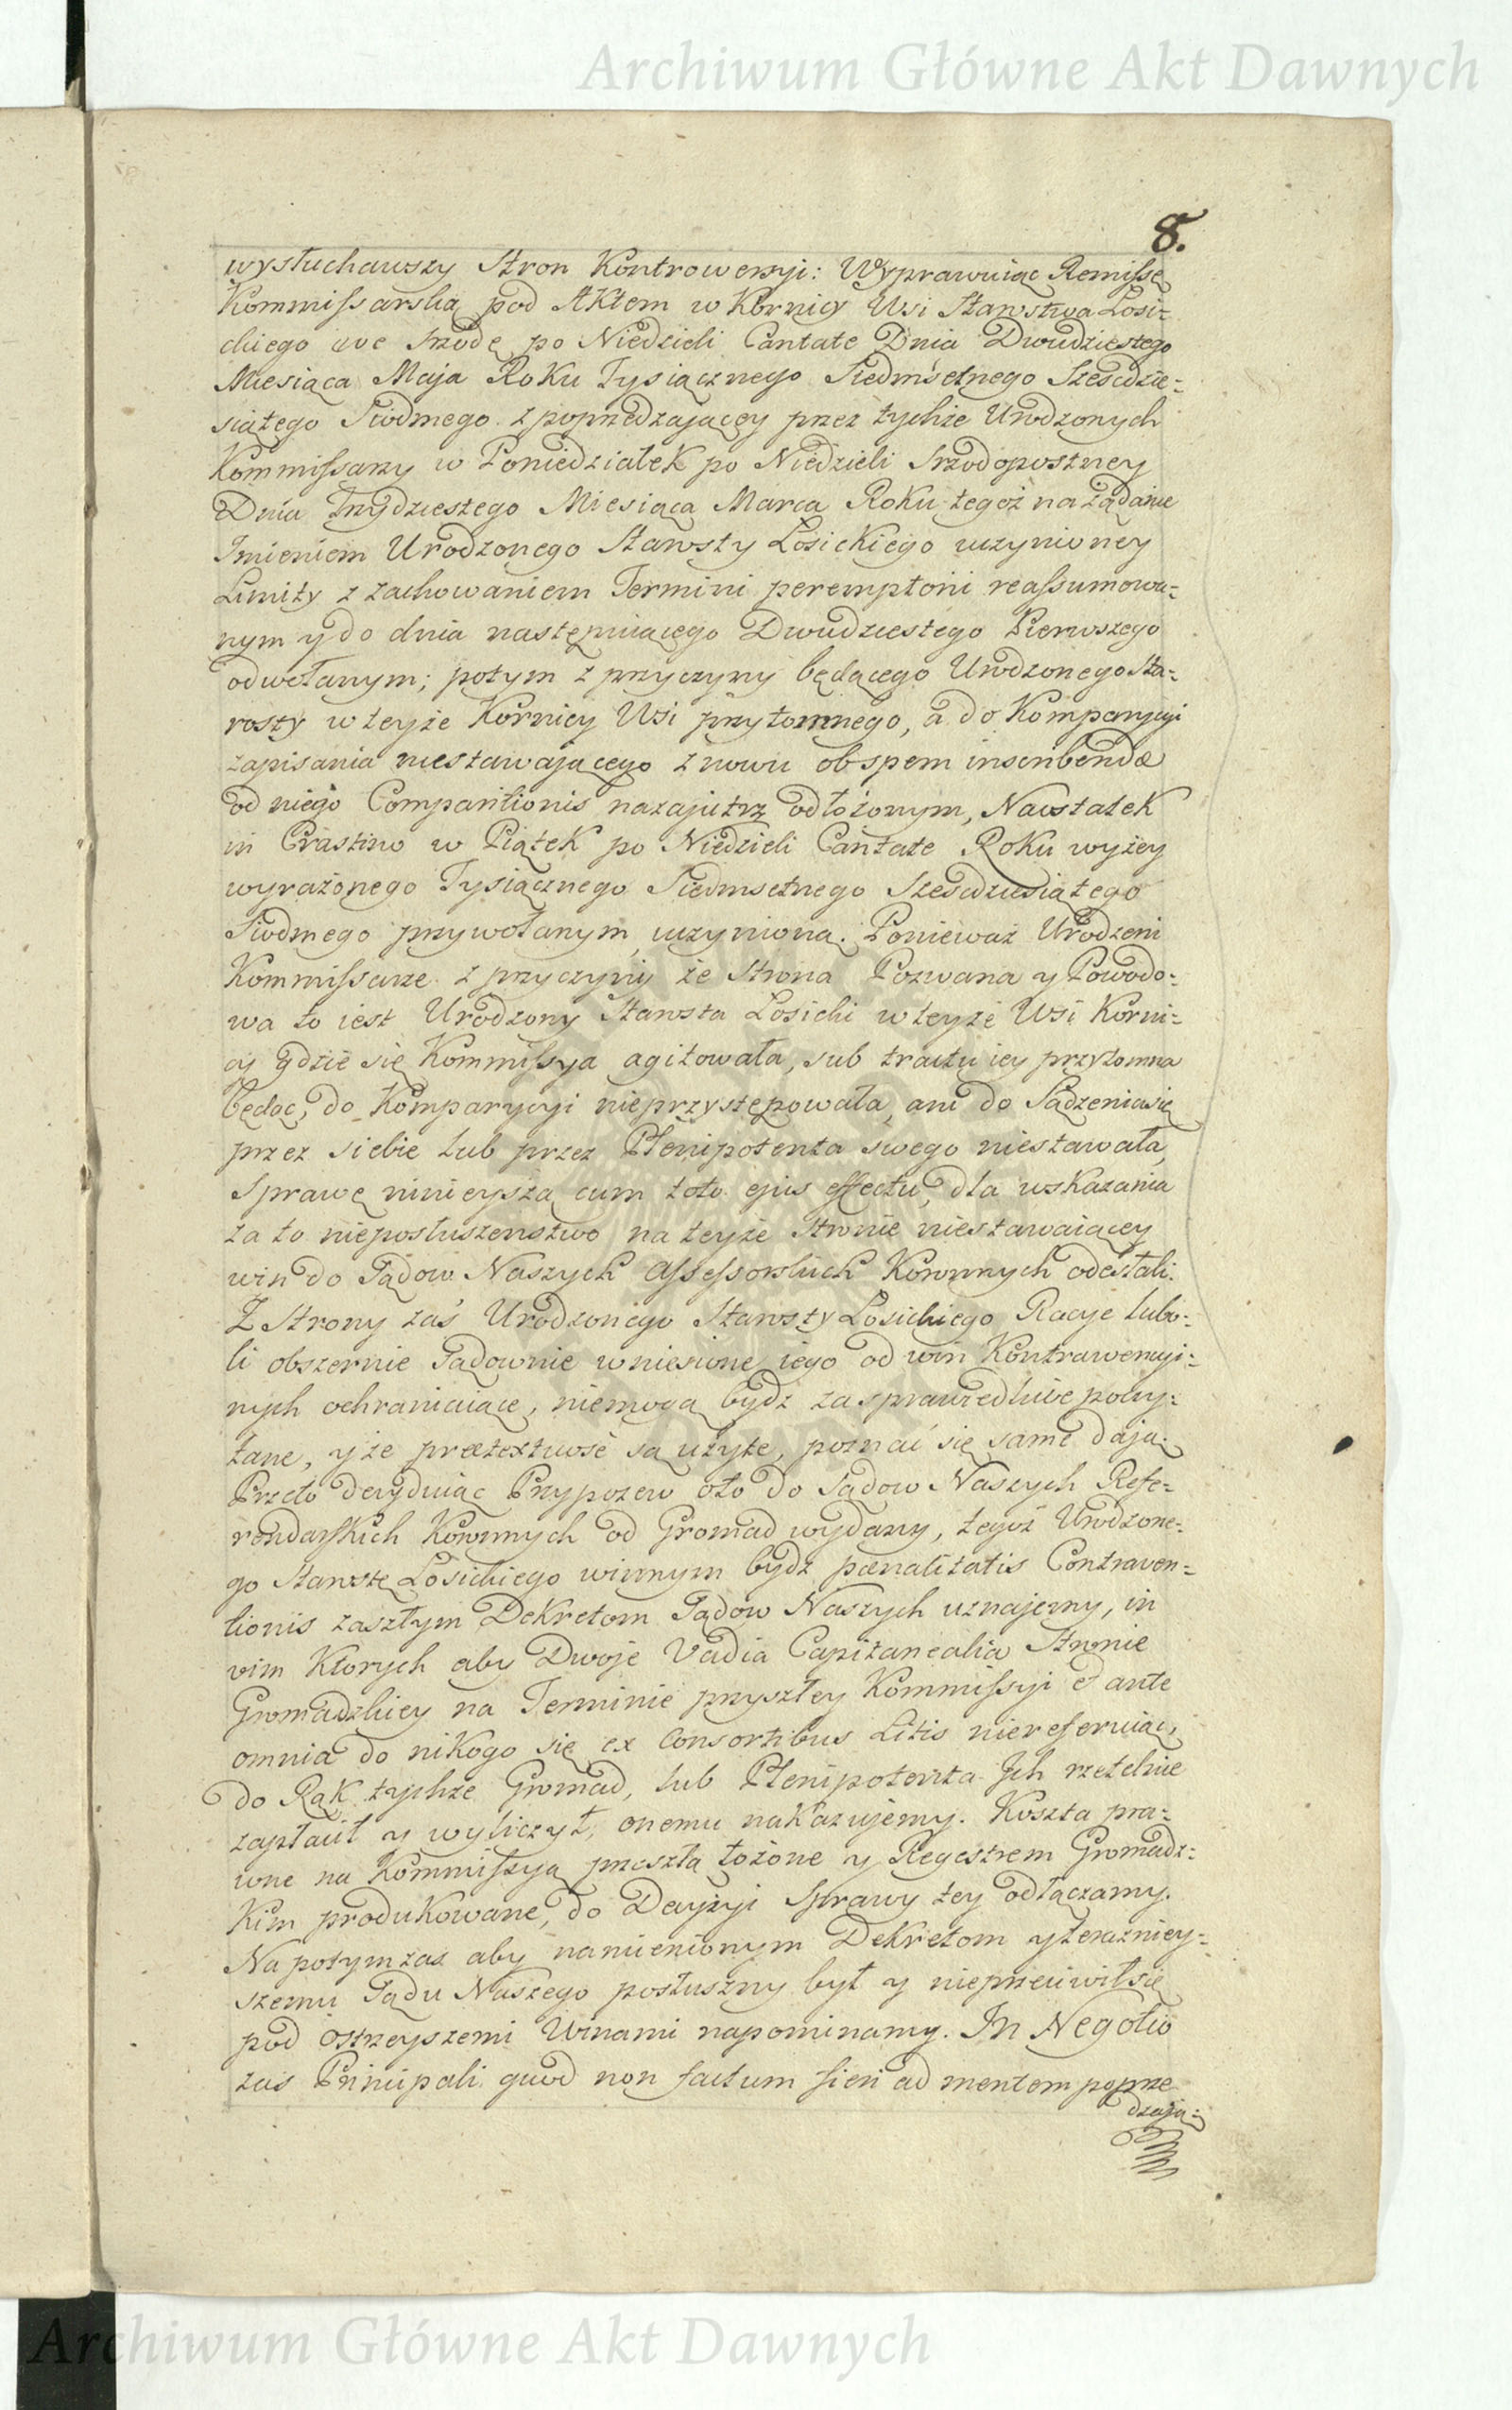 Archiwum Główne Akt Dawnych
8.
wysłuchawszy Stron Kontrowersyi: Wyprawuiąc Remissę
Kommissarską pod Aktem w Kornicy Wsi Starostwa Łosi-
ckiego we Srzodę po Niedzieli Cantate Dnia Dwudziestego
Miesiąca Maja Roku Tysiącznego Siedmsetnego Szescdzie-
siątego Siodmego z poprzedzającey przez tychże Urodzonych
Kommissarzy w Poniedziałek po Niedzieli Srzodopostney
Dnia Trzydziestego Miesiąca Marca Roku tegoż na żądanie
Imieniem Urodzonego Starosty Łosickiego uczynioney
Limity z zachowaniem Termini peremptorii reassumowa-
nym y do dnia następuiącego Dwudziestego Pierwszego
odwołanym; potym z przyczyny będącego Urodzonego Sta-
rosty w teyże Kornicy Wsi przytomnego, a do Komparycyi
zapisania niestawającego znowu ob spem inscribendæ
od niego Comparitionis nazajutrz odłożonym, Naostatek
in Crastino w Piątek po Niedzieli Cantate Roku wyżey
wyrażonego Tysiącznego Siedmsetnego Szescdziesiątego
Siodmego przywołanym uczyniona. Ponieważ Urodzeni
Kommissarze z przyczyny że Strona Pozwana y Powodo-
wa to iest Urodzony Starosta Łosicki w teyże Wsi Korni-
cy gdzie się Kommissya agitowała, sub tractu iey przytomna
będąc, do Komparycyi nieprzystępowała, ani do Sądzenia się
przez siebie lub przez Plenipotenta swego niestawała,
Sprawę ninieyszą cum toto ejus effectu, dla wskazania
za to nieposłuszenstwo na teyże Stronie niestawaiącey
win do Sądow Naszych Assessorskich Koronnych odesłali.
Z Strony zaś Urodzonego Starosty Łosickiego Racye lubo-
li obszernie Sądownie wniesione iego od win Kontrawencyi-
nych ochraniaiące, niemogą bydz za sprawiedliwe poczy-
tane, y że prætextuose są użyte, poznać się same dają.
Przeto decyduiąc Przypozew oto do Sądow Naszych Refe-
rendarskich Koronnych od Gromad wydany, tegoż Urodzone-
go Starostę Łosickiego winnym bydz pœnalitatis Contraven-
tionis zaszłym Dekretom Sądow Naszych uznajemy, in
vim ktorych aby Dwoje Vadia Capitanealia Stronie
Gromadzkiey na Terminie przyszłey Kommissyi et ante
omnia do nikogo się ex Consortibus Litis niereferuiąc,
do Rąk tychże Gromad, lub Plenipotenta Ich rzetelnie
zapłacił y wyliczył, onemu nakazujemy. Koszta pra-
wne na Kommissyą przeszłą łożone y Regestrem Gromadz-
kim produkowane, do Decyzyi Sprawy tey odłączamy.
Na potym zas aby namienionym Dekretom y terazniey-
szemu Sądu Naszego posłuszny był y nieprzeciwił się
pod ostrzeyszemi Winami napominamy. In Negotio
zaś Principali quod non factum fieri ad mentem poprze
dzają-
Archiwum Główne Akt Dawnych